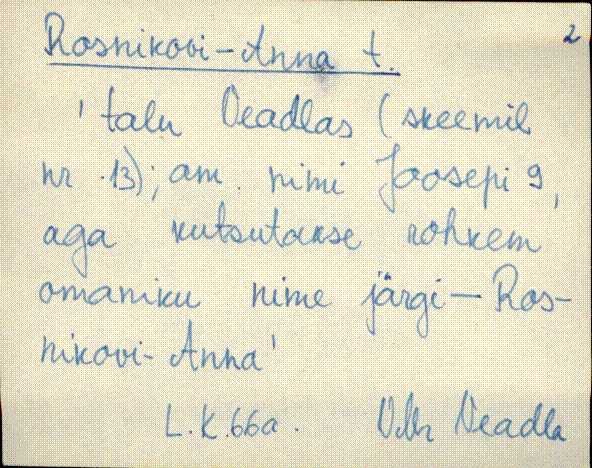 2
Rosnikovi-Anna t.
'talu Veadlas (skeemil
nr .13); am. nimi Joosepi 9,
aga kutsutakse rohkem
omaniku nime järgi — Ros-
nikovi- Anna'
L.K.66a. Veadla